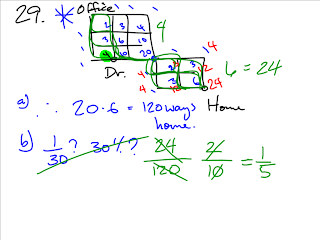 29. * Office
2 3 4
3 6 10
4 10 20
4
Dr.
4
4
2 3
3 6
24
6 = 24
a) ∴ 20·6 = 120 ways Home
home.
b) 1/30 ? 30% ? 24/120 2/10 = 1/5